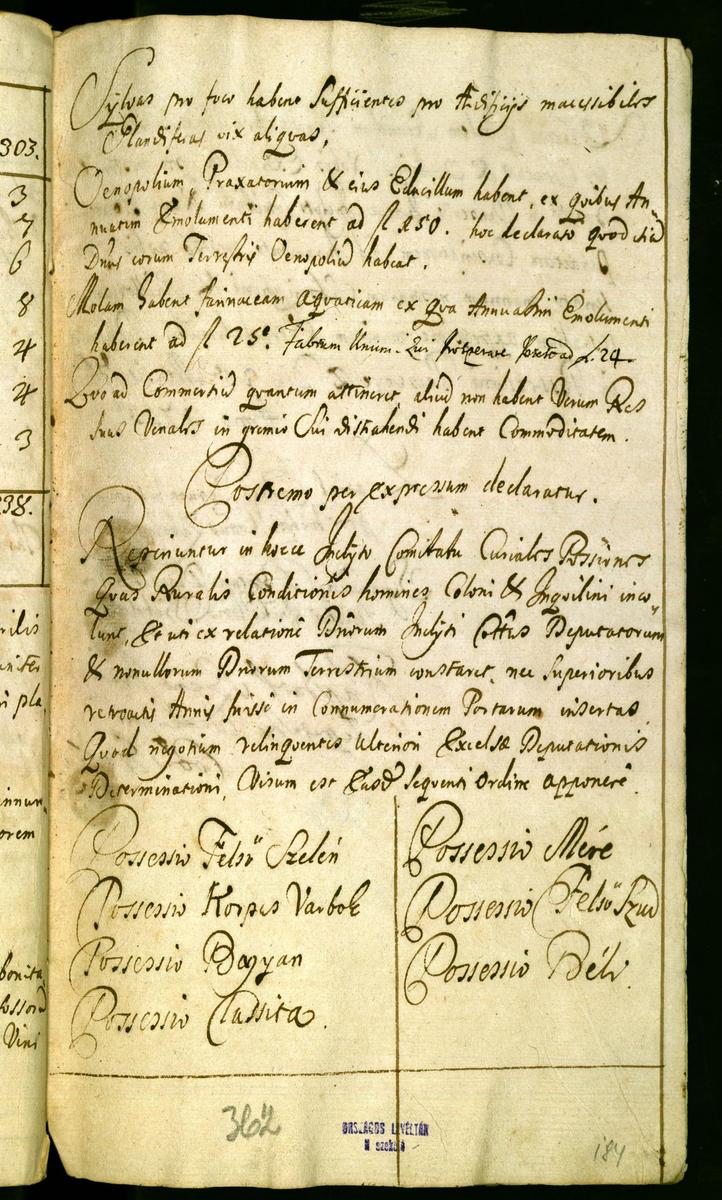 303.
3
7
6
8
4
4
3
238.
Sylvas pro foco habent Sufficientes pro Ædificijs inaccessibiles
Glandiferas vix aliquas,
Oenopolium, Braxatorium & eius Educillum habent, ex quibus An-
nuatim Emolumenti haberent ad fl 250. hoc declarato quod etiā
Dnus eorum Terrestris Oenopoliū habeat.
Molam habent farinaceam aquaticam ex qua Annuatim Emolumenti
haberent ad fl 25. Fabrum Unum. Qui ad f. 24.
Quoad Commertiū quantum attineret, aliud non habent Verum Res
suas Venales in gremio Sui distrahendi habent Commoditatem.
Postremo per Expressum declaratur.
Reperiuntur in hocce Inclyto Comitatu Curiales Possiones
Quas Ruralis Conditionis homines Coloni & Inquilini inco-
lunt, Et uti ex relatione Dnorum Inclyti Cottus Deputatorum
& nonullorum Dnorum Terrestrium constaret, nec Superioribus
retroactis Annis fuisse in Connumerationem Portarum insertas
Quod negotium relinquentes Ulteriori Excelsæ Deputationis
Determinationi, Visum est Easdē sequenti Ordine apponere.
Possessio Felső Szelén
Possessio Korpás Varbok
Possessio Bagyan
Possessio Classita.
Possessio Mére
Possessio Felső Szud
Possessio Béli.
rilis
initer
ri pla
innum
orem
bonita
Vini
362
ORSZÁGOS LEVÉLTÁR
N szekció
184